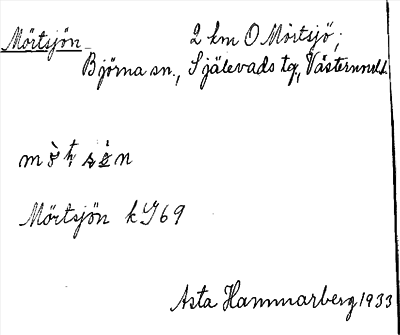 Mörtsjön 2 km O Mörtsjö,
Björna sn., Själevads tg, Västernorrl.
Mörtsjön k I69
Asta Hammarberg 1933